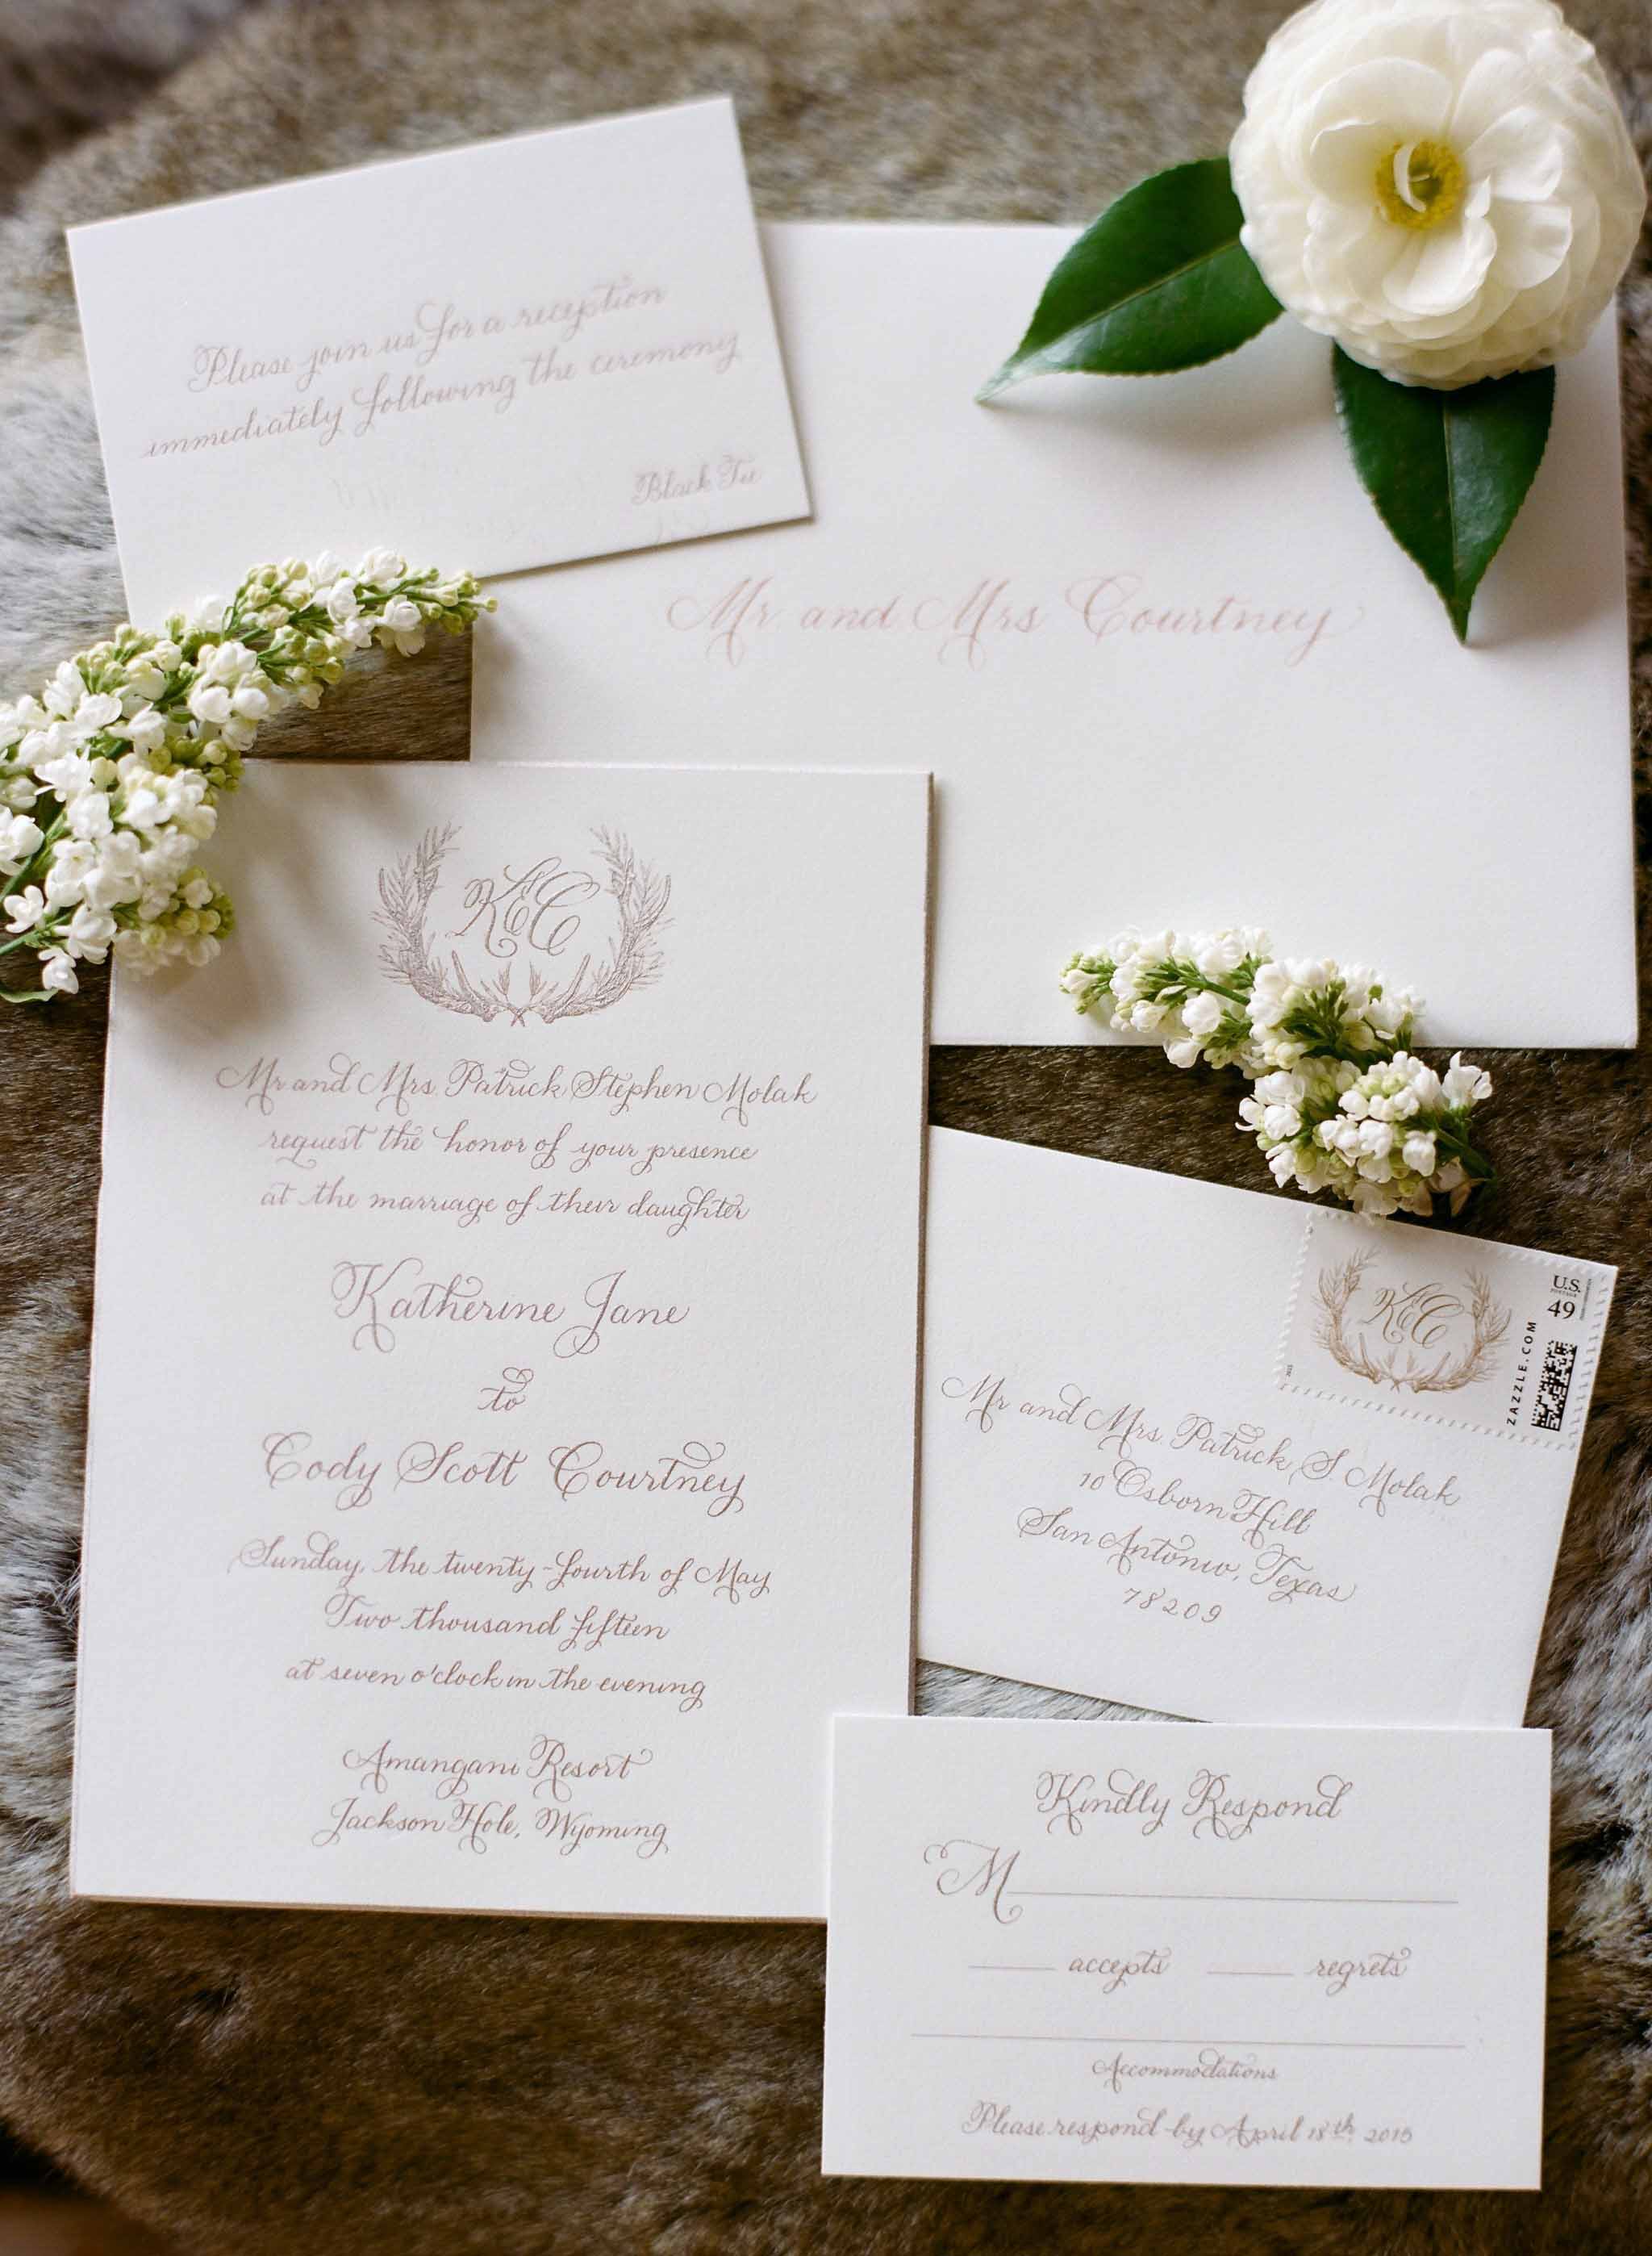 Please join us for a reception
immediately following the ceremony
Black Tie
Mr. and Mrs Courtney
K&C
Mr and Mrs. Patrick Stephen Molak
request the honor of your presence
at the marriage of their daughter
Katherine Jane
to
Cody Scott Courtney
Sunday, the twenty-fourth of May
Two thousand fifteen
at seven o'clock in the evening
Amangani Resort
Jackson Hole, Wyoming
K&C
U.S.
POSTAGE
49
ZAZZLE.COM
Mr and Mrs. Patrick S. Molak
10 Osborn Hill
San Antonio, Texas
78209
Kindly Respond
M
accepts regrets
Accommodations
Please respond by April 18th, 2015